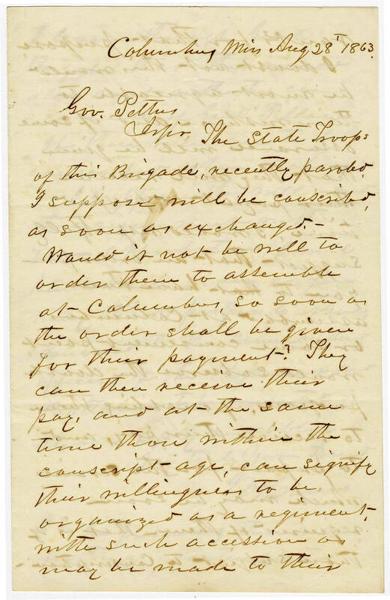 Columbus Miss Aug 28' 1863.
Gov. Pettus
Sir The State Troops
of this Brigade, recently paroled,
I suppose will be conscribed,
as soon as exchanged.-
Would it not be well to
order them to assemble
at Columbus, so soon as
the order shall be given
for their payment? They
can then receive their
pay, and at the same
time those within the
conscript age, can signify
their willingness to be
organized as a regiment,
with such accession as
may be made to their